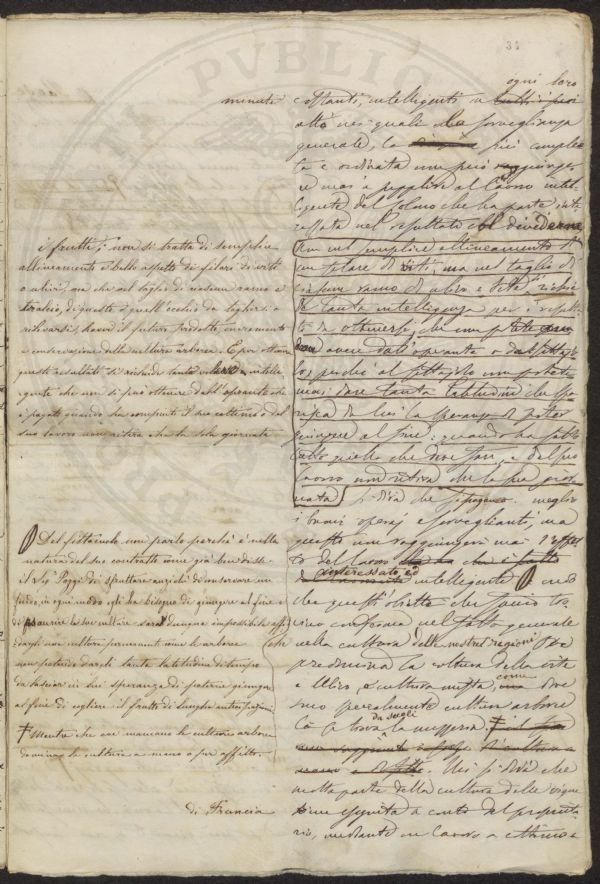 31
ogni loro
minuti costanti, intelligenti in
atto nei quali la sorveglianza
generale, la più comple
ta e ordinata non può raggiunge
re mai a supplire al lavoro intel
ligente del Colono che ha parte inte
ressata nel resultato
non nel semplice allineamento di
un filare di viti, ma nel taglio di
ciascun ramo di ulivo e vite, richie
de tanta intelligenza per i resulta
ti da ottenersi, che non potete
avere dall'operante o dal fittajo
lo, perché al fittajolo non potrete
mai dare tanta latitudine che
di lui la speranza di poter
giungere al fine: quando ha fatto
tutto quello che deve fare, e dal suo
lavoro non ritira che la sua gior
nata si dirà che si pagano meglio
i buoni operaj e sorveglianti, ma
questo non raggiungerà mai l'effet
to del lavoro
interessato ed
intelligente
che quest'obietto che
nel fatto generale
nella cultura delle nostre regioni ove
predomina la coltura della vite
e Ulivo, o cultura mista, come dove
sono parzialmente culture arbore
là si trova la mezzeria. †
da
Mi si dirà che
molta parte della cultura delle vigne
di Francia è eseguita a conto del proprieta
rio, mediante un lavoro a cottimo e
i frutti; non si tratta di semplice
allineamento e bello aspetto di filari di viti
o ulivi, ma che nel taglio di ciascun ramo o
tralcio, di questo o quell'occhio da togliersi o
riservarsi, havvi il futuro prodotto, incremento
e conservazione della cultura arborea. E per ottener
questi resultati si richiede tanto volere e intelli
gente che non si può ottenere dall'operante che
è pagato quando ha compiuto il suo cottimo o dal
suo lavoro non ritira che la sola giornata
Del fittaiuolo non parlo perché è nella
natura del suo contratto come già ben disse
il Sig. Poggi di sfruttare anziché di conservare un
fondo, in ogni modo egli ha bisogno di giungere al fine
di esaurire le sue culture sarà dunque impossibile affi
dargli una cultura permanente come le arboree
non potendo dargli tanta latitudine di tempo
da lasciar in lui speranza di poter giungere
al fine di cogliere il frutto di lunghe anticipazioni
† Mentre che ove mancano le culture arboree
domina la cultura a mano o per affitto.